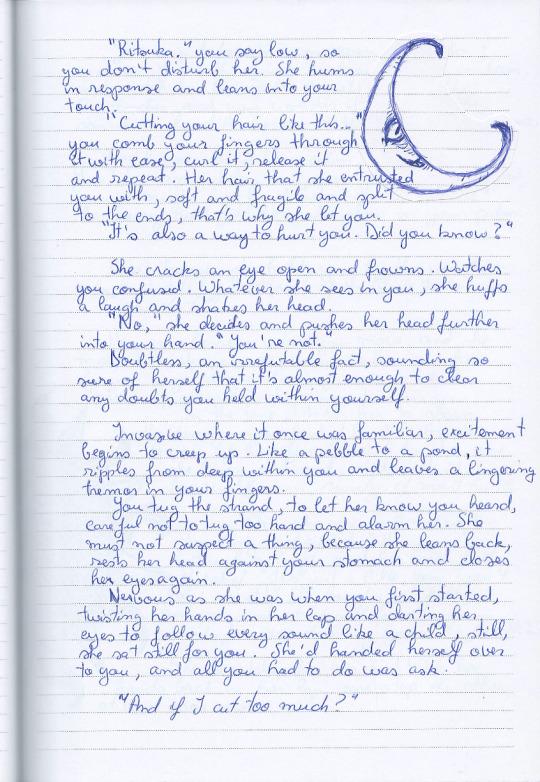 "Ritsuka." you say low, so
you don't disturb her. She hums
in response and leans into your
touch.
"Cutting your hair like this..."
you comb your fingers through
it with ease, curl it, release it
and repeat. Her hair that she entrusted
you with, soft and fragile and split
to the ends, that's why she let you.
"It's also a way to hurt you. Did you know?"
She cracks an eye open and frowns. Watches
you confused. Whatever she sees in you, she huffs
a laugh and shakes her head.
"No," she decides and pushes her head further
into your hand. "You're not."
Doubtless, an irrefutable fact, sounding so
sure of herself that it's almost enough to clear
any doubts you held within yourself.
Invasive where it once was familiar, excitement
begins to creep up. Like a pebble to a pond, it
ripples from deep within you and leaves a lingering
tremor in your fingers.
You tug the strand, to let her know you heard,
careful not to tug too hard and alarm her. She
must not suspect a thing, because she leans back,
rests her head against your stomach and closes
her eyes again.
Nervous as she was when you first started,
twisting her hands in her lap and darting her
eyes to follow every sound like a child, still,
she sat still for you. She'd handed herself over
to you, and all you had to do was ask.
"And if I cut too much?"